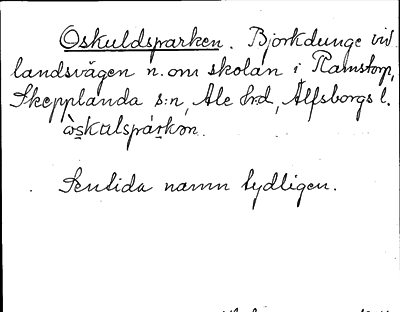 Oskuldsparken. Björkdunge vid
landsvägen n. om skolan i Ramstorp,
Skepplanda s:n, Ale hrd, Älfsborgs l.
òskulspárkon.
Sentida namn tydligen.